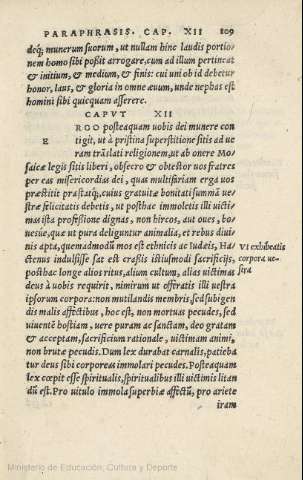 PARAPHRASIS. CAP. XII 109
deǫ́; munerum suorum, ut nullam hinc laudis portio
nem homo sibi poßit arrogare, cum ad illum pertineat
& initium, & medium, & finis: cui uni ob id debetur
honor, laus, & gloria in omne æuum, unde nephas est
homini sibi quicquam asserere.
CAPVT XII
ERGO posteaquam uobis dei munere con
tigit, ut à pristina superstitione sitis ad ue
ram trãslati religionem, ut ab onere Mo
saicæ legis sitis liberi, obsecro & obtestor uos fratres
per eas misericordias dei, quas multifariam erga uos
præstitit præstatq́;, cuius gratuitæ bonitati summã ue/
stræ felicitatis debetis, ut posthac immoletis illi uicti/
mas ista professione dignas, non hircos, aut oues, bo/
uesúe, quæ ut pura deliguntur animalia, et rebus diui/
nis apta, quemadmodũ mos est ethnicis ac Iudæis, Ha
ctenus indulsisse sat est craßis istiusmodi sacrificijs,
posthac longe alios ritus, alium cultum, alias uictimas
deus à uobis requirit, nimirum ut offeratis illi uestra
ipsorum corpora: non mutilandis membris, sed subigen
dis malis affectibus, hoc est, non mortuas pecudes, sed
uiuentē hostiam, uere puram ac sanctam, deo gratam
& acceptam, sacrificium rationale, uictimam animi,
non brutæ pecudis. Dum lex durabat carnalis, patieba
tur deus sibi corporeas immolari pecudes. Posteaquam
lex cœpit esse spiritualis, spiritualibus illi uictimis litan
dũ est. Pro uitulo immola superbiæ affectũ, pro ariete
iram
Vt exhibeatis
corpora ue-
stra
Ministerio de Educación, Cultura y Deporte